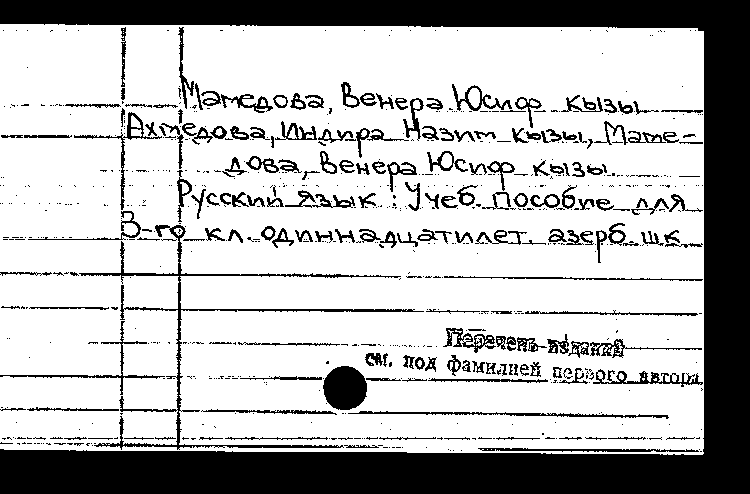 Мамедова, Венера Юсиф кызы
Ахмедова, Индира Назим кызы, Маме-
дова, Венера Юсиф кызы.
Русский язык : Учеб. пособие для
3-го кл. одиннадцатилет. азерб. шк.
Перечень изданий
см. под фамилией первого автора